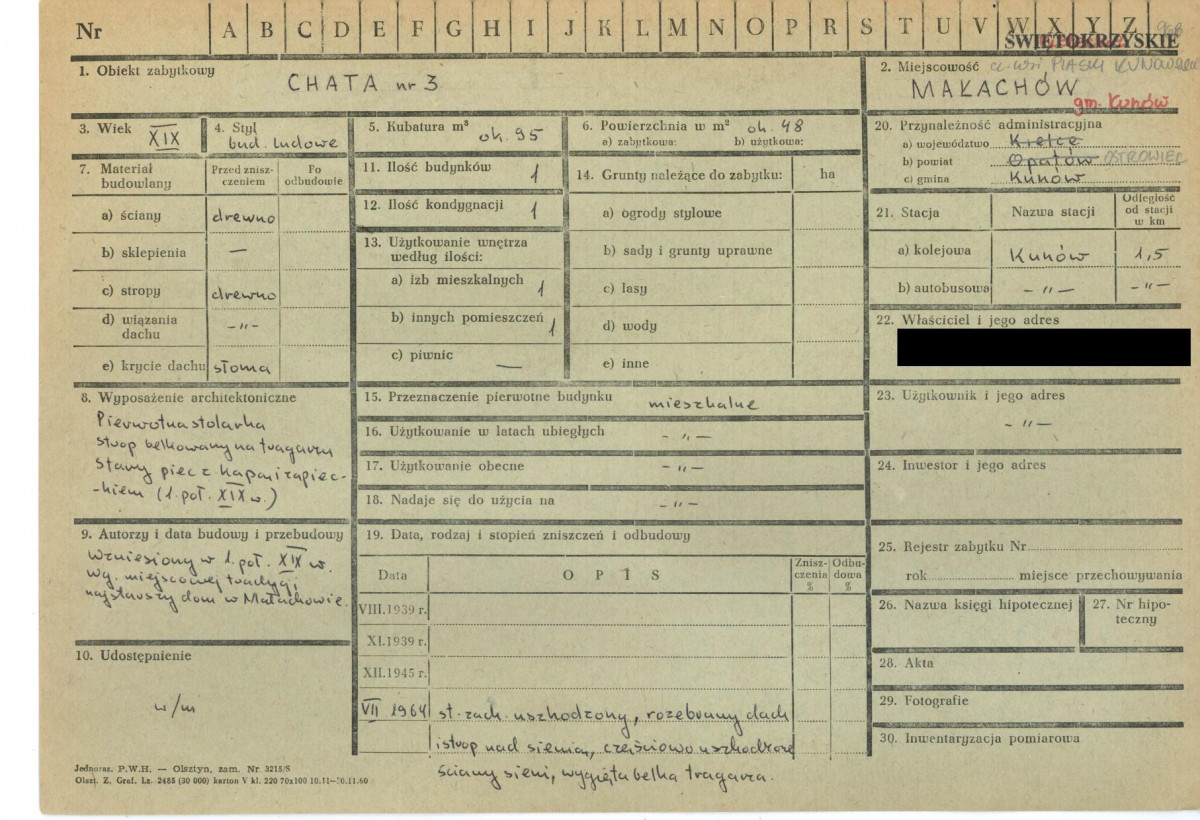 Nr A B C D E F G H I J K L M N O P R S T U V W X Y Z
ŚWIĘTOKRZYSKIE
1. Obiekt zabytkowy
CHATA nr 3
2. Miejscowość
PIASKI KUNOWSKIE
MAŁACHÓW
gm. Kunów
3. Wiek XIX
4. Styl
bud. ludowe
5. Kubatura m³ ok. 95
6. Powierzchnia w m² ok. 48
a) zabytkowa: b) użytkowa:
20. Przynależność administracyjna
a) województwo Kielce
b) powiat Opatów OSTROWIEC
c) gmina Kunów
7. Materiał budowlany
Przed zniszczeniem
Po odbudowie
a) ściany drewno
b) sklepienia —
c) stropy drewno
d) wiązania dachu -"-
e) krycie dachu słoma
11. Ilość budynków 1
12. Ilość kondygnacji 1
13. Użytkowanie wnętrza
według ilości:
a) izb mieszkalnych 1
b) innych pomieszczeń 1
c) piwnic —
14. Grunty należące do zabytku: ha
a) ogrody stylowe
b) sady i grunty uprawne
c) lasy
d) wody
e) inne
21. Stacja Nazwa stacji Odległość od stacji w km
a) kolejowa Kunów 1,5
b) autobusowa -"- -"-
22. Właściciel i jego adres
8. Wyposażenie architektoniczne
Pierwotna stolarka
strop belkowany na tragarzu
Stary piec z kapą i zapiec-
-kiem (1. poł. XIX w.)
15. Przeznaczenie pierwotne budynku mieszkalne
16. Użytkowanie w latach ubiegłych -"-
17. Użytkowanie obecne -"-
18. Nadaje się do użycia na -"-
23. Użytkownik i jego adres
-"-
24. Inwestor i jego adres
9. Autorzy i data budowy i przebudowy
Wzniesiony w 1. poł. XIX w.
wg. miejscowej tradycji
najstarszy dom w Małachowie.
19. Data, rodzaj i stopień zniszczeń i odbudowy
Data OPIS Zniszczenia % Odbudowa %
VIII.1939 r.
XI.1939 r.
XII.1945 r.
VII 1964 st. zach. uszkodzony, rozebrany dach
i strop nad sienią, częściowo uszkodzone
ściany sieni, wygięta belka tragarza.
25. Rejestr zabytku Nr
rok miejsce przechowywania
26. Nazwa księgi hipotecznej
27. Nr hipoteczny
28. Akta
29. Fotografie
30. Inwentaryzacja pomiarowa
10. Udostępnienie
w/m
Jednoraz. P.W.H. — Olsztyn, zam. Nr 3215/S
Olszt. Z. Graf. Lz. 2485 (30 000) karton V kl. 220 70x100 10.11—30.11.60